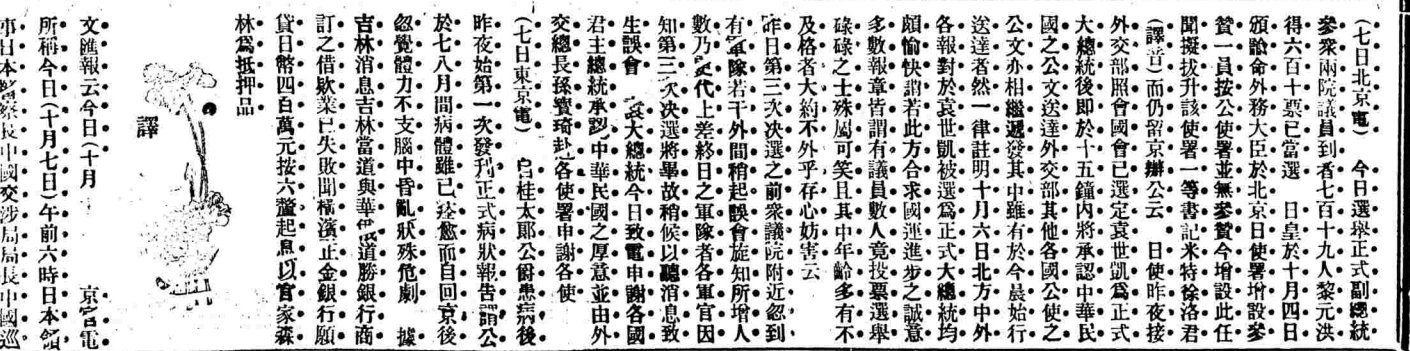 （七日北京電）　今日選舉正式副總統
參衆兩院議員到者七百十九人黎元洪
得六百十票已當選　日皇於十月四日
頒諭命外務大臣於北京日使署增設參
贊一員按公使署並無參贊今增設此任
聞擬拔升該使署一等書記米特徐洛君
（譯音）而仍留京辦公云　日使昨夜接
外交部照會國會已選定袁世凱爲正式
大總統後即於十五鐘內將承認中華民
國之公文送達外交部其他各國公使之
公文亦相繼遞發其中雖有於今晨始行
送達者然一律註明十月六日北方中外
各報對於袁世凱被選爲正式大總統均
頗愉快謂若此方合求國運進步之誠意
多數報章皆謂有議員數人竟投票選舉
碌碌之士殊屬可笑且其中年齡多有不
及格者大約不外乎存心妨害云
昨日第三次决選之前衆議院附近忽到
有軍隊若干外間稍起誤會旋知所增人
數乃更代上差終日之軍隊者各軍官因
知第三次决選將畢故稍候以聽消息致
生誤會　袁大總統今日致電申謝各國
君主總統承認中華民國之厚意並由外
交總長孫寶琦赴各使署申謝各使
（七日東京電）　桂太郎公爵患病後
昨夜始第一次發刊正式病狀報告謂公
於七八月間病體雖已痊愈而自回京後
忽覺體力不支腦中昏亂狀殊危劇　據
吉林消息吉林當道與華俄道勝銀行商
訂之借欵業已失敗聞橫濱正金銀行願
貸日幣四百萬元按六釐起息以官家森
林爲抵押品
譯
文匯報云今日（十月　京官電
所稱今日（十月七日）午前六時日本領
事日本警察長中國交涉局局長中國巡